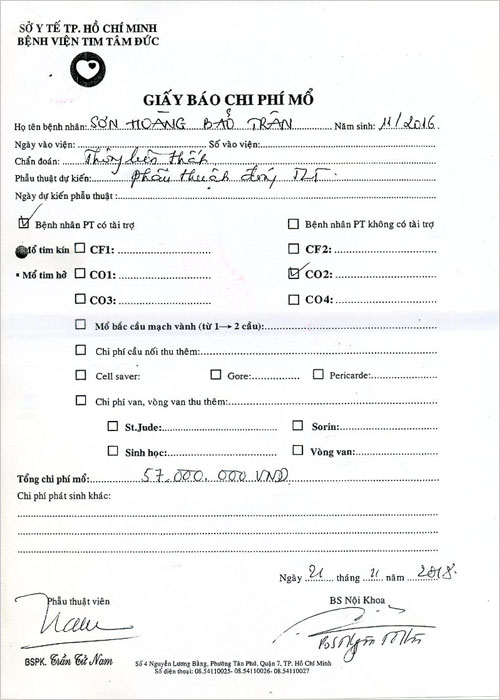 SỞ Y TẾ TP. HỒ CHÍ MINH
BỆNH VIỆN TIM TÂM ĐỨC
GIẤY BÁO CHI PHÍ MỔ
Họ tên bệnh nhân: SƠN HOÀNG BẢO TRÂN Năm sinh: 11/2016
Ngày vào viện: Số vào viện:
Chẩn đoán: Thông liên thất
Phẫu thuật dự kiến: phẫu thuật đóng TLT
Ngày dự kiến phẫu thuật :
Bệnh nhân PT có tài trợ Bệnh nhân PT không có tài trợ
Mổ tim kín CF1: CF2:
• Mổ tim hở CO1: CO2:
CO3: CO4:
Mổ bắc cầu mạch vành (từ 1→ 2 cầu):
Chi phí cầu nối thu thêm:
Cell saver: Gore: Pericarde:
Chi phí van, vòng van thu thêm:
St.Jude: Sorin:
Sinh học: Vòng van:
Tổng chi phí mổ: 57.000.000 VNĐ
Chi phí phát sinh khác:
Ngày 21 tháng 11 năm 2018.
Phẫu thuật viên BS Nội Khoa
BSPK. Trần Tử Nam
Số 4 Nguyễn Lương Bằng, Phường Tân Phú, Quận 7, TP. Hồ Chí Minh
Số điện thoại: 08.54110025- 08.54110026- 08.54110027